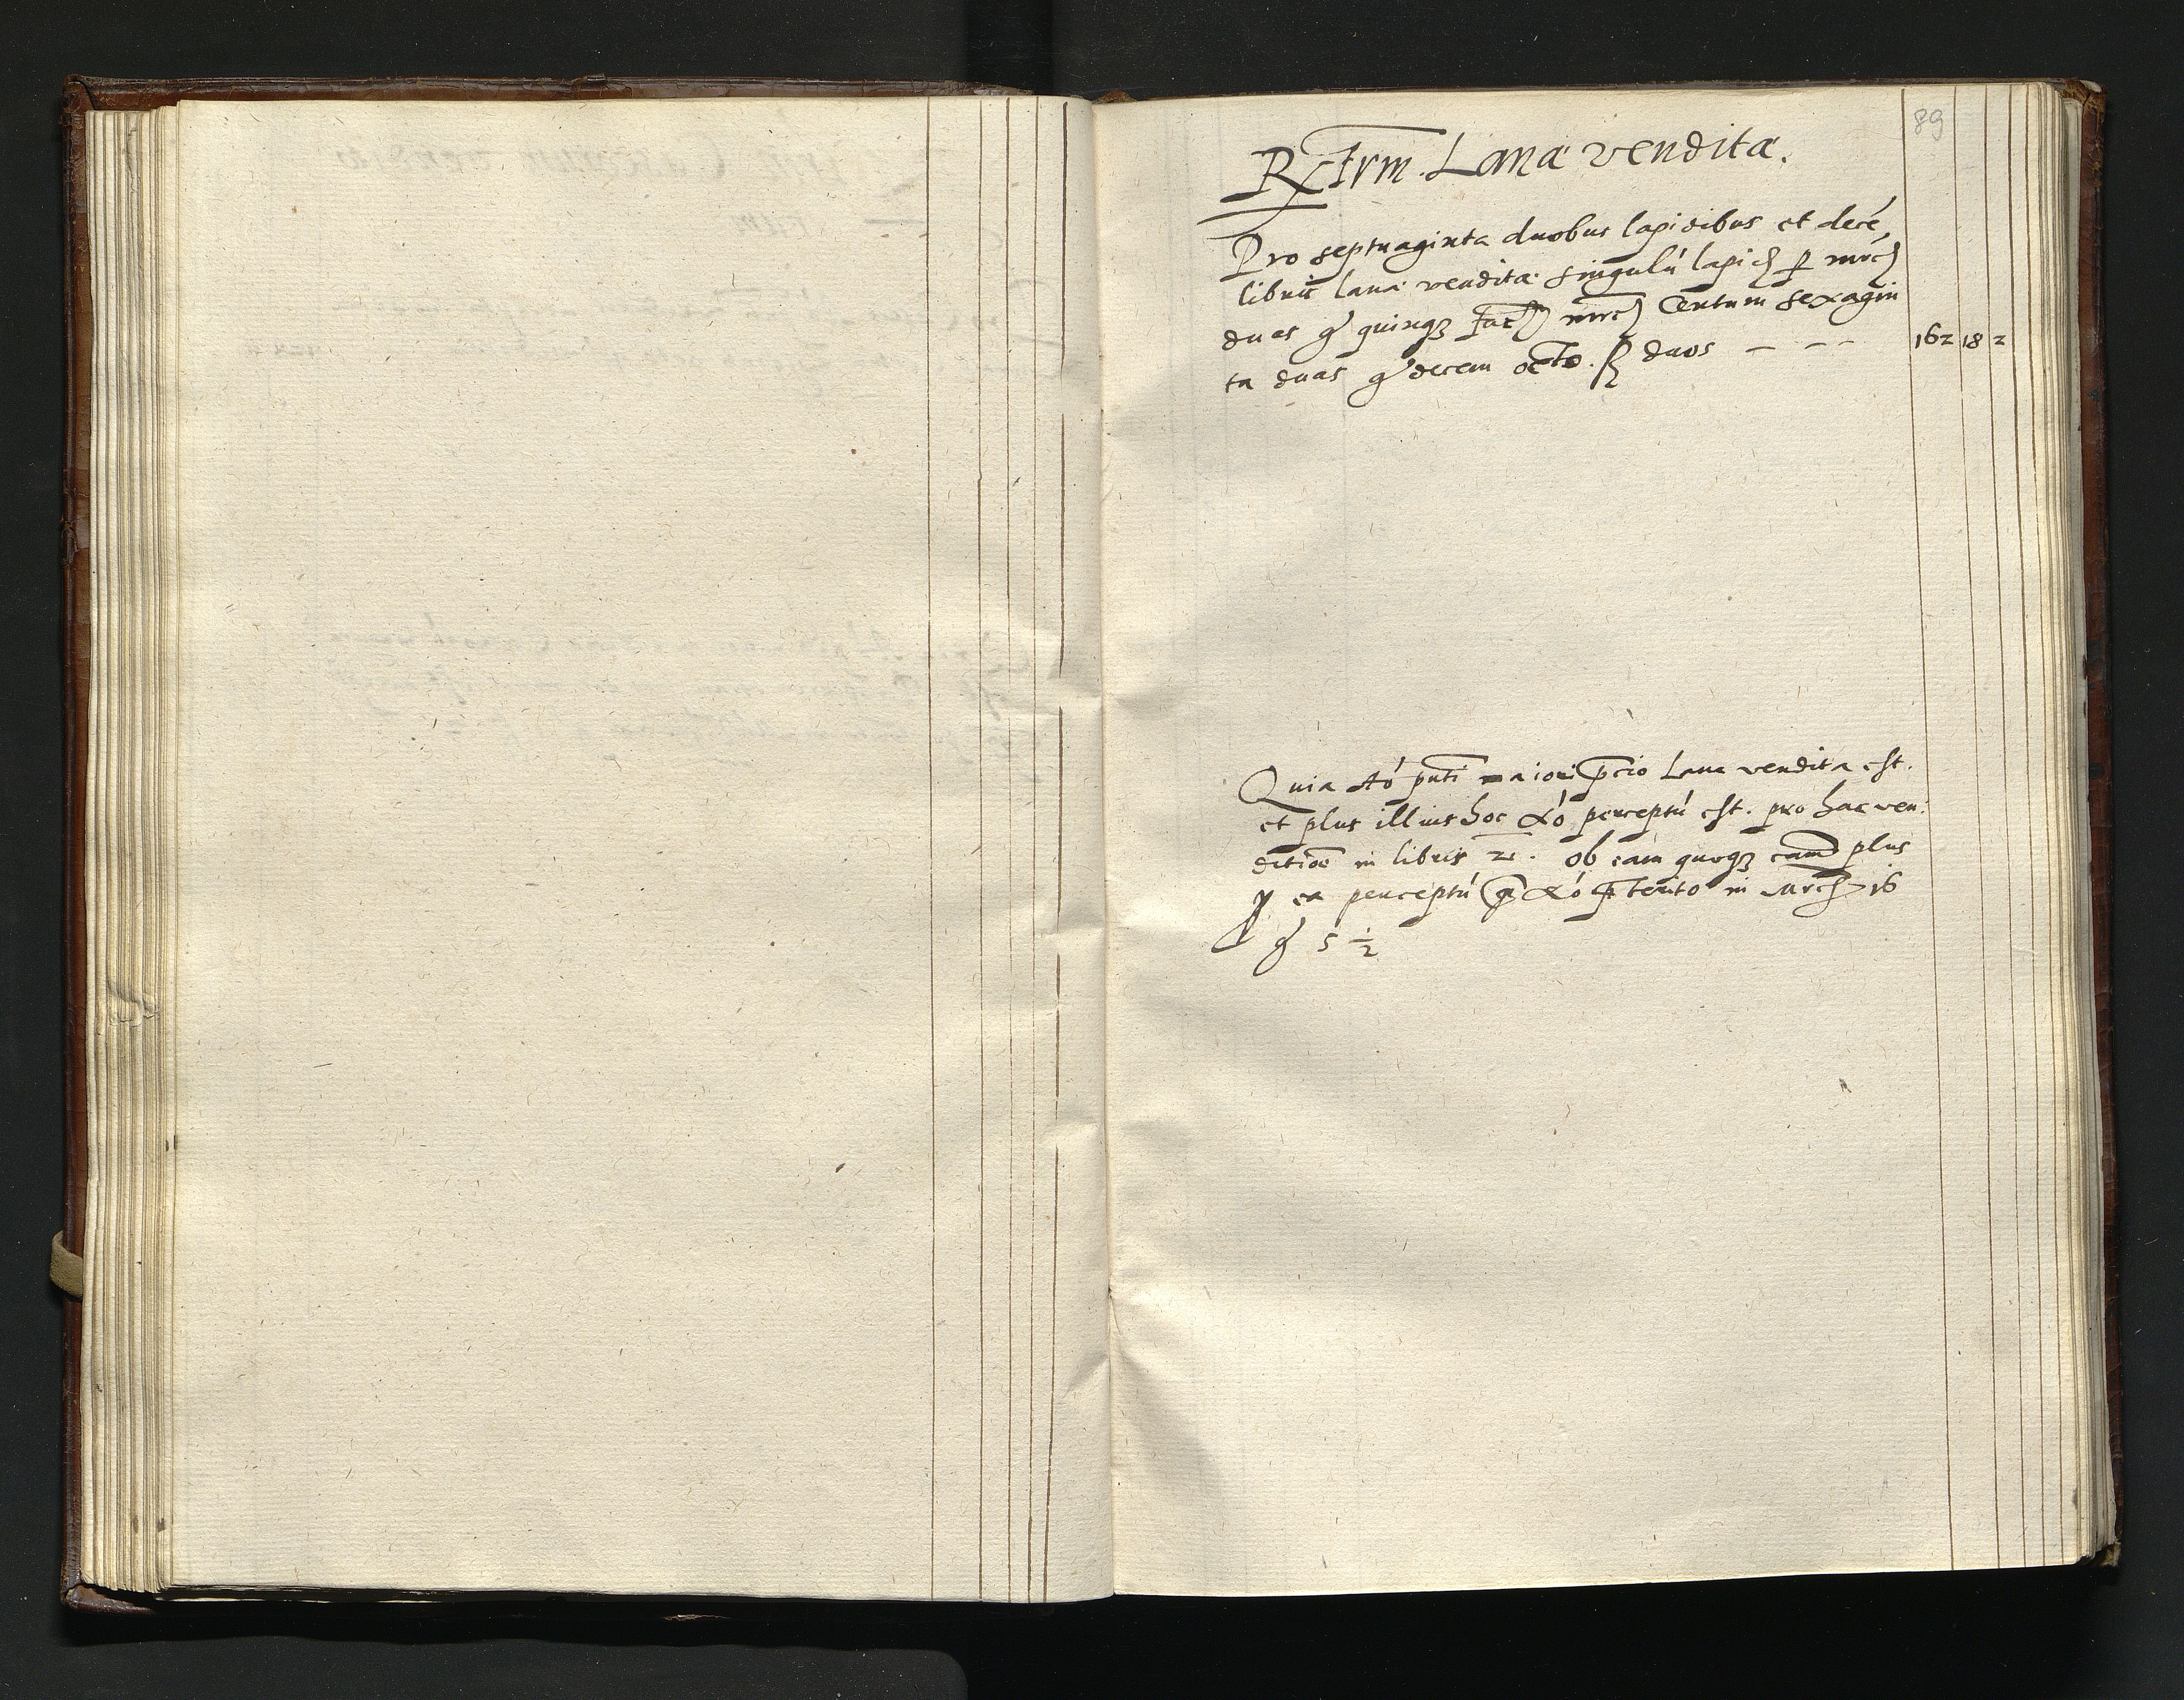 89
Rtrm. Lanæ venditæ.
Pro septuaginta duobus lapidibus et decē
libris lanæ venditæ singulū lapid p mrc
duas g quinqz fac mrc Centum sexagin
ta duas g decem octo. ß duos — — — 162 18 2
Quia Aō pnti maiori pcio Lana vendita est.
et plus illius hoc Aō perceptū est. pro hac ven:
ditioe in libris 21. ob eam quoqz cam plus
ex ea perceptū Aō pterito in mrc 16
g 5 1/2